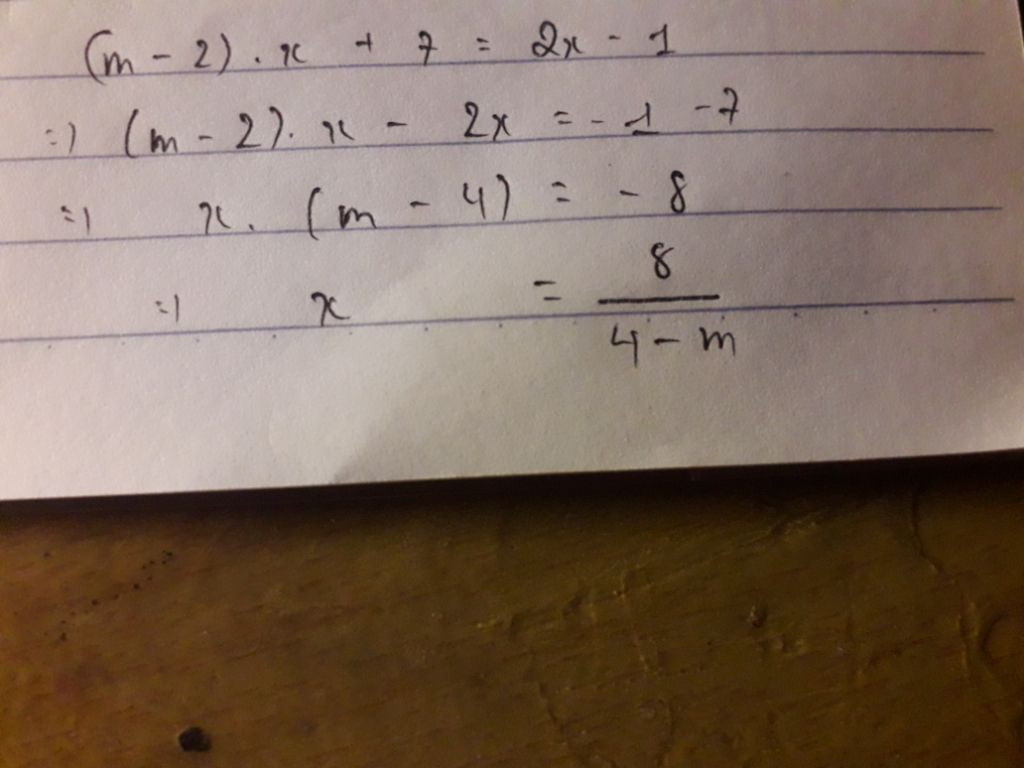 (m - 2) . x + 7 = 2x - 1
=) (m - 2). x - 2x = - 1 - 7
=) x. (m - 4) = - 8
=) x = 8 / 4 - m